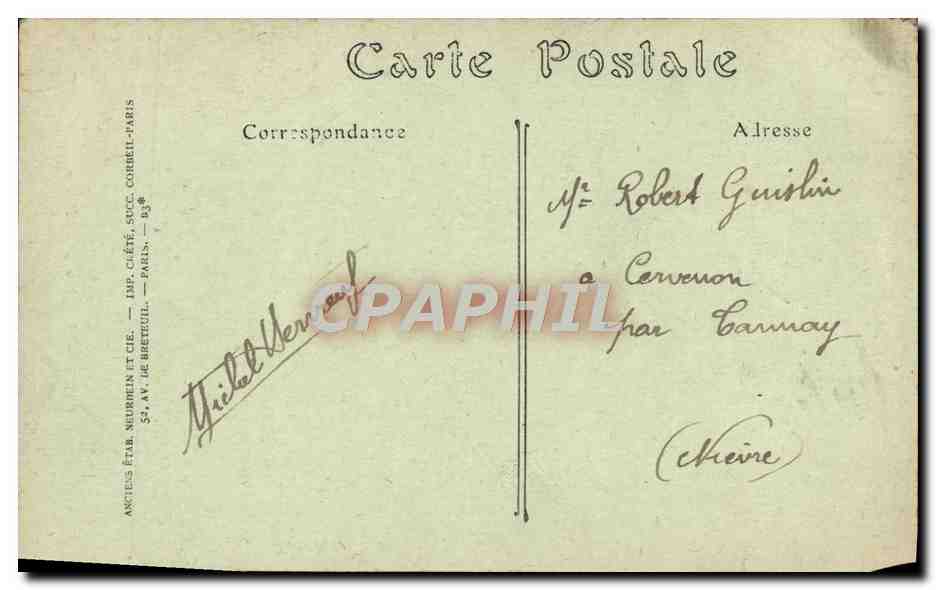 Carte Postale
Correspondance
Adresse
ANCIENS ÉTAB. NEURDEIN ET CIE. — IMP. CRÉTÉ, SUCC. CORBEIL-PARIS
52, AV. DE BRETEUIL. — PARIS. — B3*
Mr Robert Guislin
a Cervenon
par Tannay
(Nièvre)
Michel
CPAPHIL